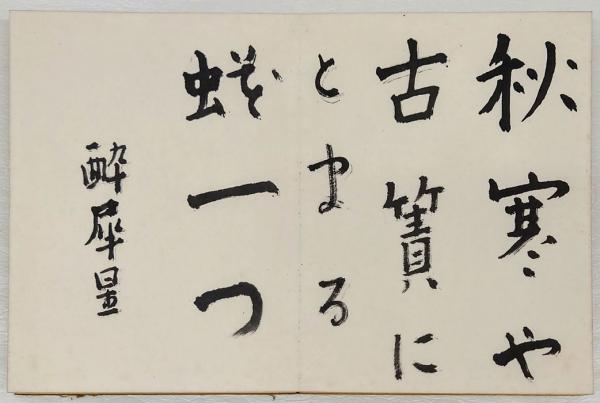 秋寒や
古簀に
とまる
蜷一つ
酔犀星